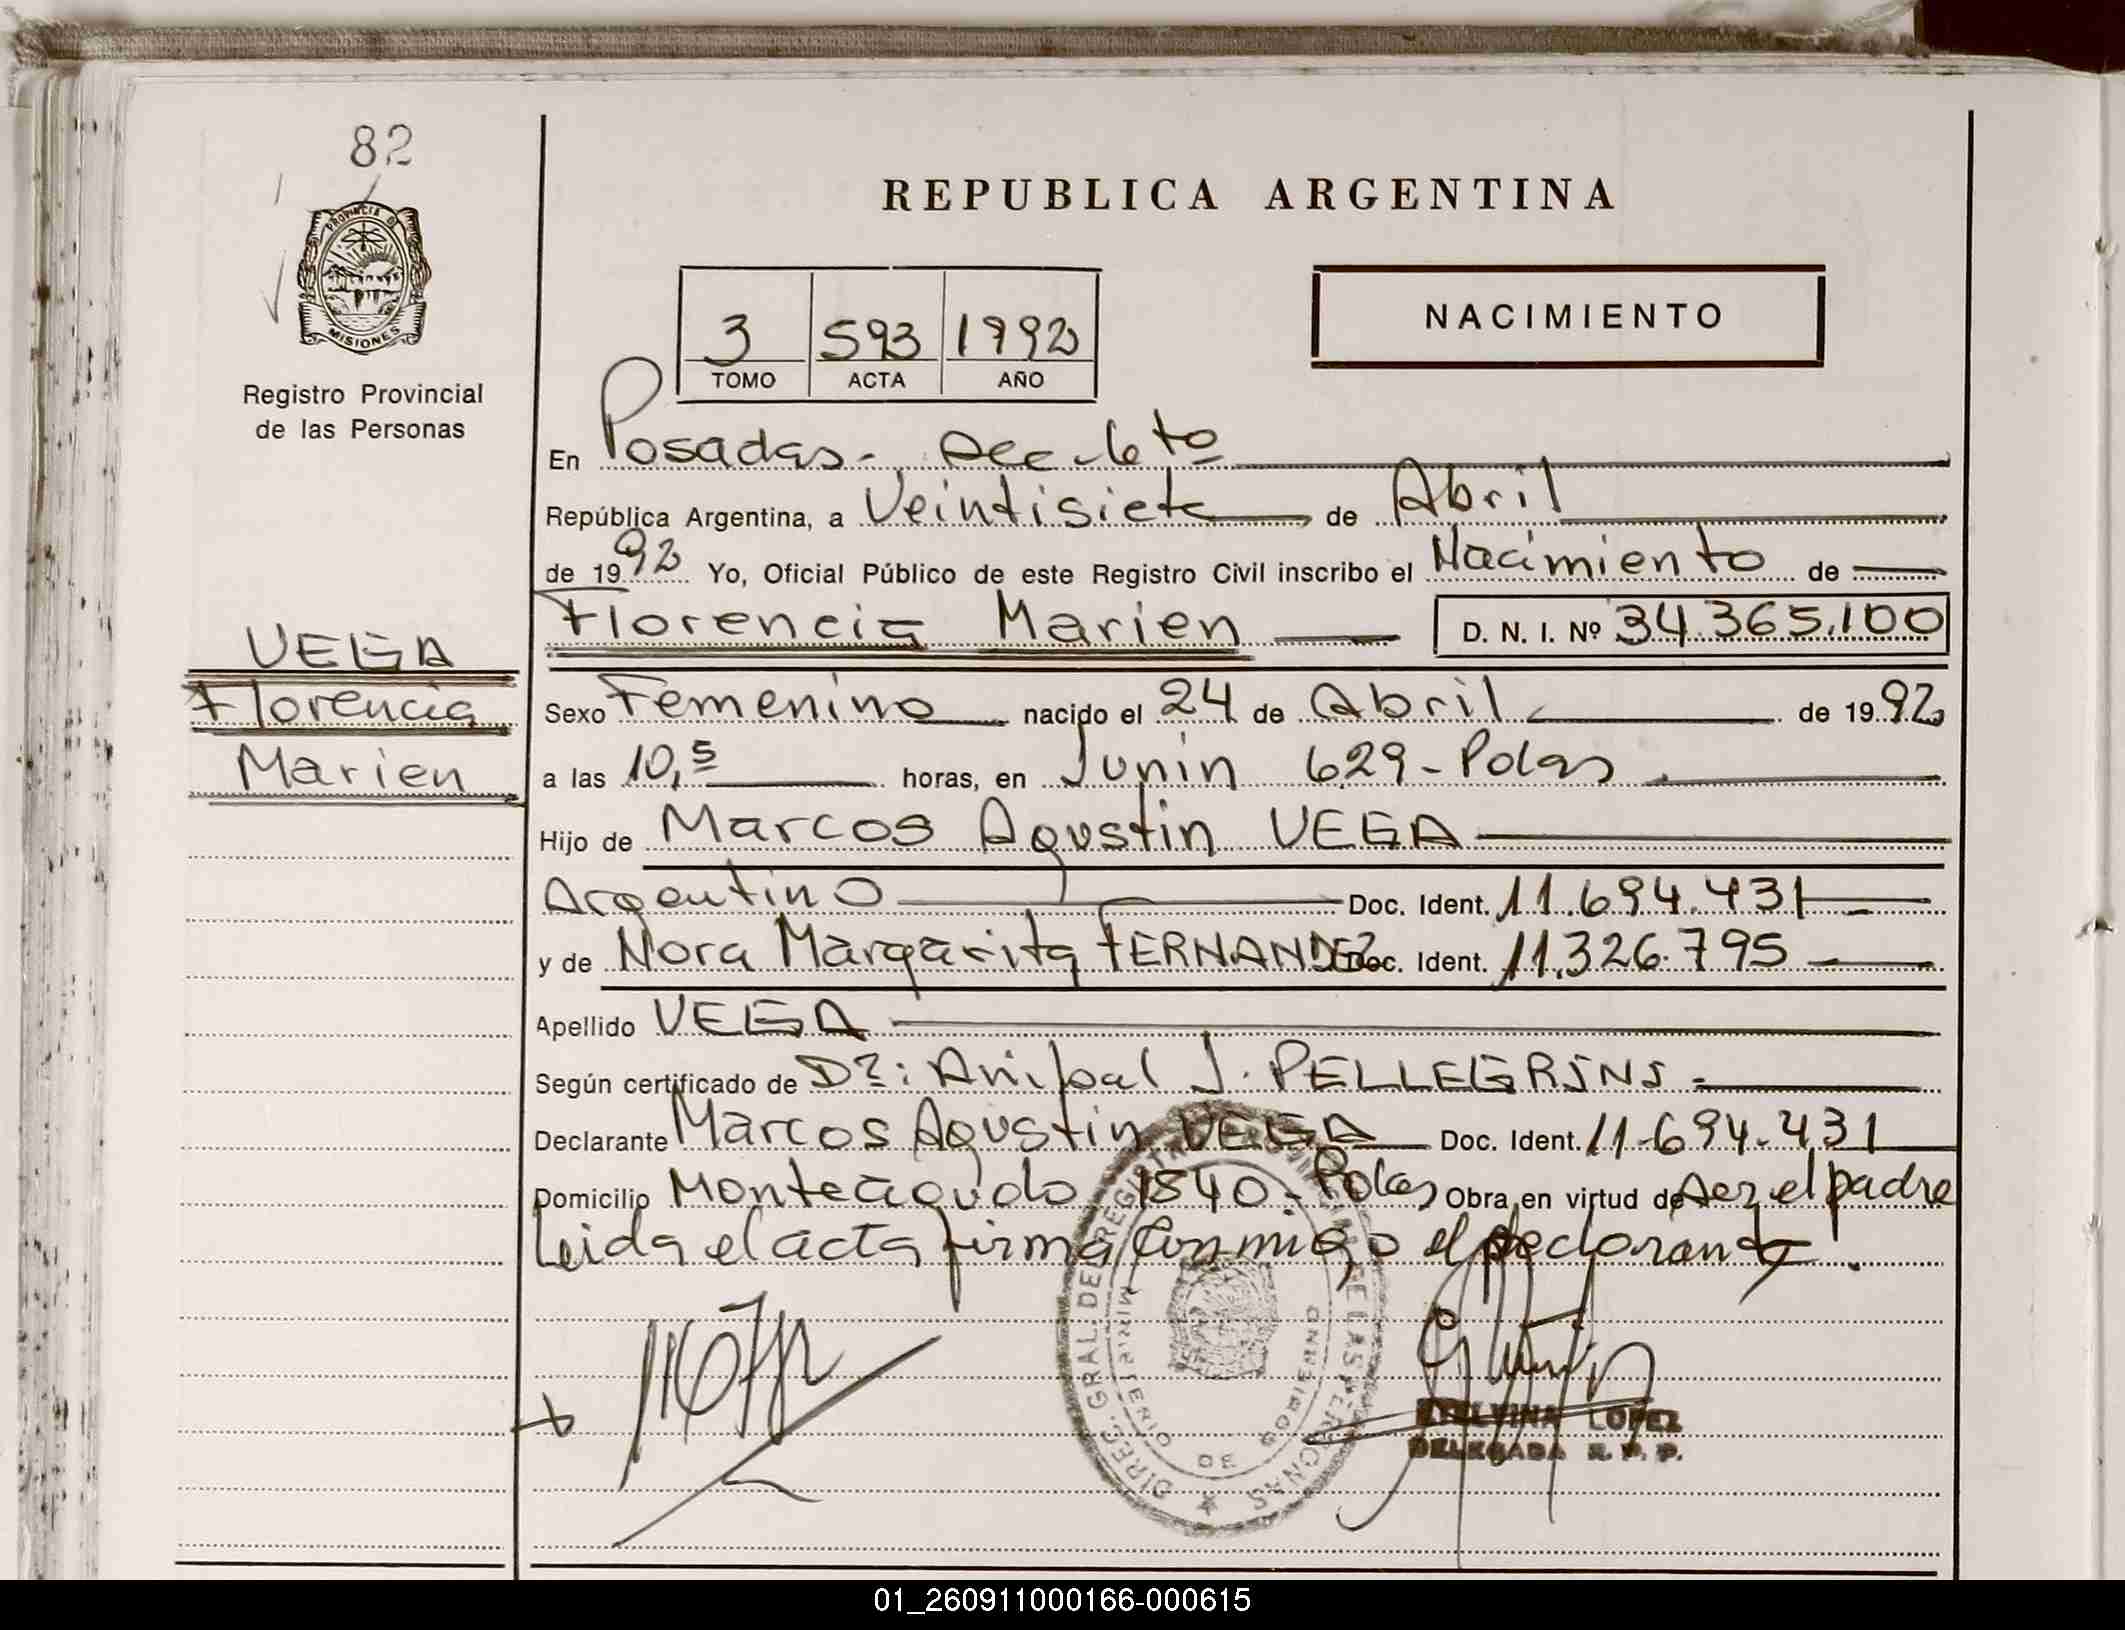 82
REPUBLICA ARGENTINA
PROVINCIA DE
MISIONES
Registro Provincial
de las Personas
3 593 1992
TOMO ACTA AÑO
NACIMIENTO
En Posadas - Sec. 6 to
República Argentina, a Veintisiete de Abril
de 1992 Yo, Oficial Público de este Registro Civil inscribo el Nacimiento de
Florencia Marien D. N. I. Nº 34.365.100
VEGA
Florencia
Marien
Sexo Femenino nacido el 24 de Abril de 1992
a las 10,5 horas, en Junin 629 - Pdas
Hijo de Marcos Agustin VEGA
Argentino Doc. Ident. 11.694.431
y de Nora Margarita FERNANDEZ Doc. Ident. 11.326.795
Apellido VEGA
Según certificado de Dr: Anibal J. PELLEGRINI
Declarante Marcos Agustin VEGA Doc. Ident. 11.694.431
Domicilio Monteagudo 1840 - Pdas Obra en virtud de ser el padre
Leida el acta firma conmigo el declarante.
DIREC. GRAL. DEL REGISTRO DE LAS PERSONAS
MINISTERIO DE GOBIERNO
ETELVINA LOPEZ
DELEGADA R. P. P.
01_260911000166-000615